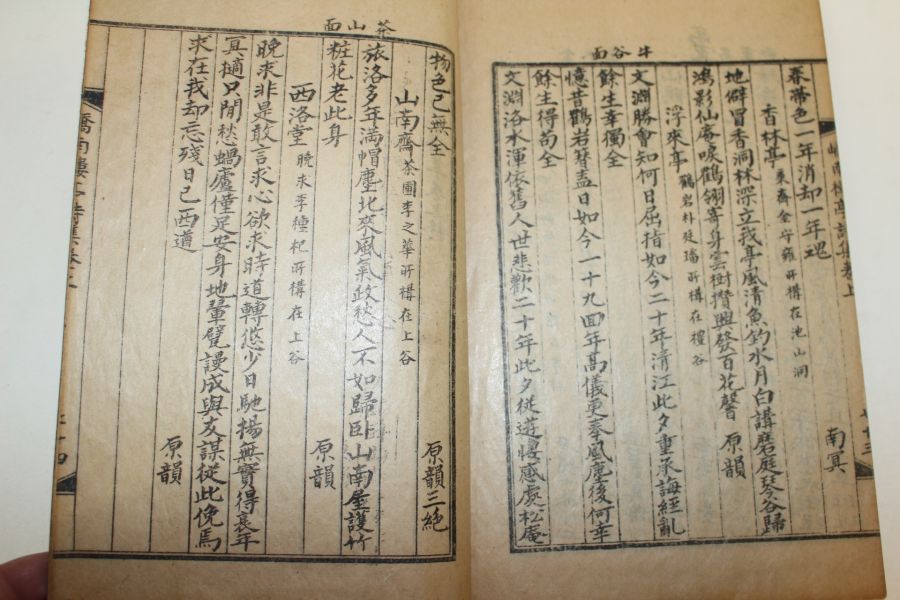 牛谷面
春帶色一年消却一年魂 南冥
香林亭 東齋金守雍所構在池山洞
地僻冒香洞林深立我亭風清魚釣水月白講磨庭琴谷歸
鴻影仙庵唳鶴翎寄身雲樹攢興發百花馨 原韻
浮來亭 鶴岩朴廷璠所構在禮谷
文淵勝會知何日屈指如今二十年清江此夕重承誨經亂
餘生幸獨全
憶昔鶴岩簪盍日如今一十九回年高儀更奉風塵後何幸
餘生得苟全
文淵洛水渾依舊人世悲歡二十年此夕從遊悽感處松庵
茶山面
物色已無全 原韻三絶
山南齋 茶圃李之華所構在上谷
旅洛多年滿帽塵北來風氣政愁人不如歸卧山南屋護竹
粧花老此身 原韻
西洛堂 晩求李種杞所構在上谷
晩求非是敢言求心欲求時道轉悠少日馳揚無實得衰年
冥擿只閒愁蝸廬僅足安身地 甓謾成與友謀從此俛焉
求在我却忘殘日已西遒 原韻